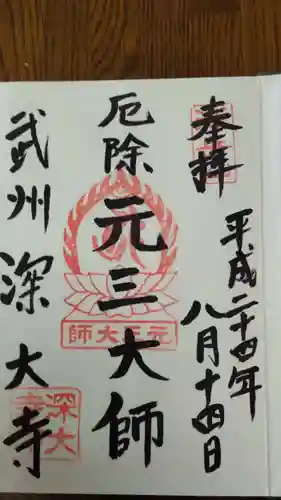 奉拝
平成二十四年
八月十四日
厄除
元三大師
元三大師
武州深大寺
深大寺